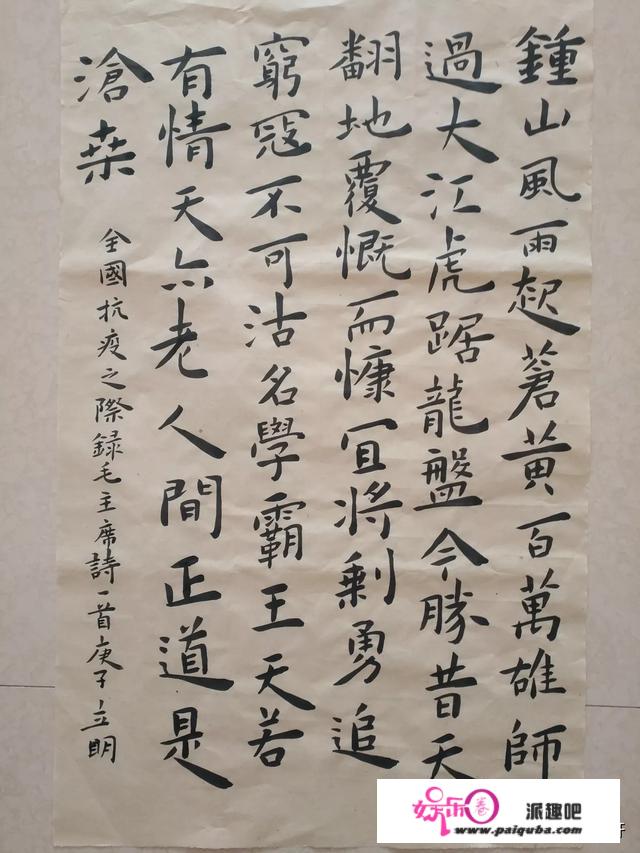 鍾山風雨起蒼黄百萬雄師
過大江虎踞龍盤今勝昔天
翻地覆慨而慷宜將剩勇追
窮寇不可沽名學霸王天若
有情天亦老人間正道是
滄桑
全國抗疫之際録毛主席詩一首庚子立明
娱乐圈 派趣吧
www.paiquba.com